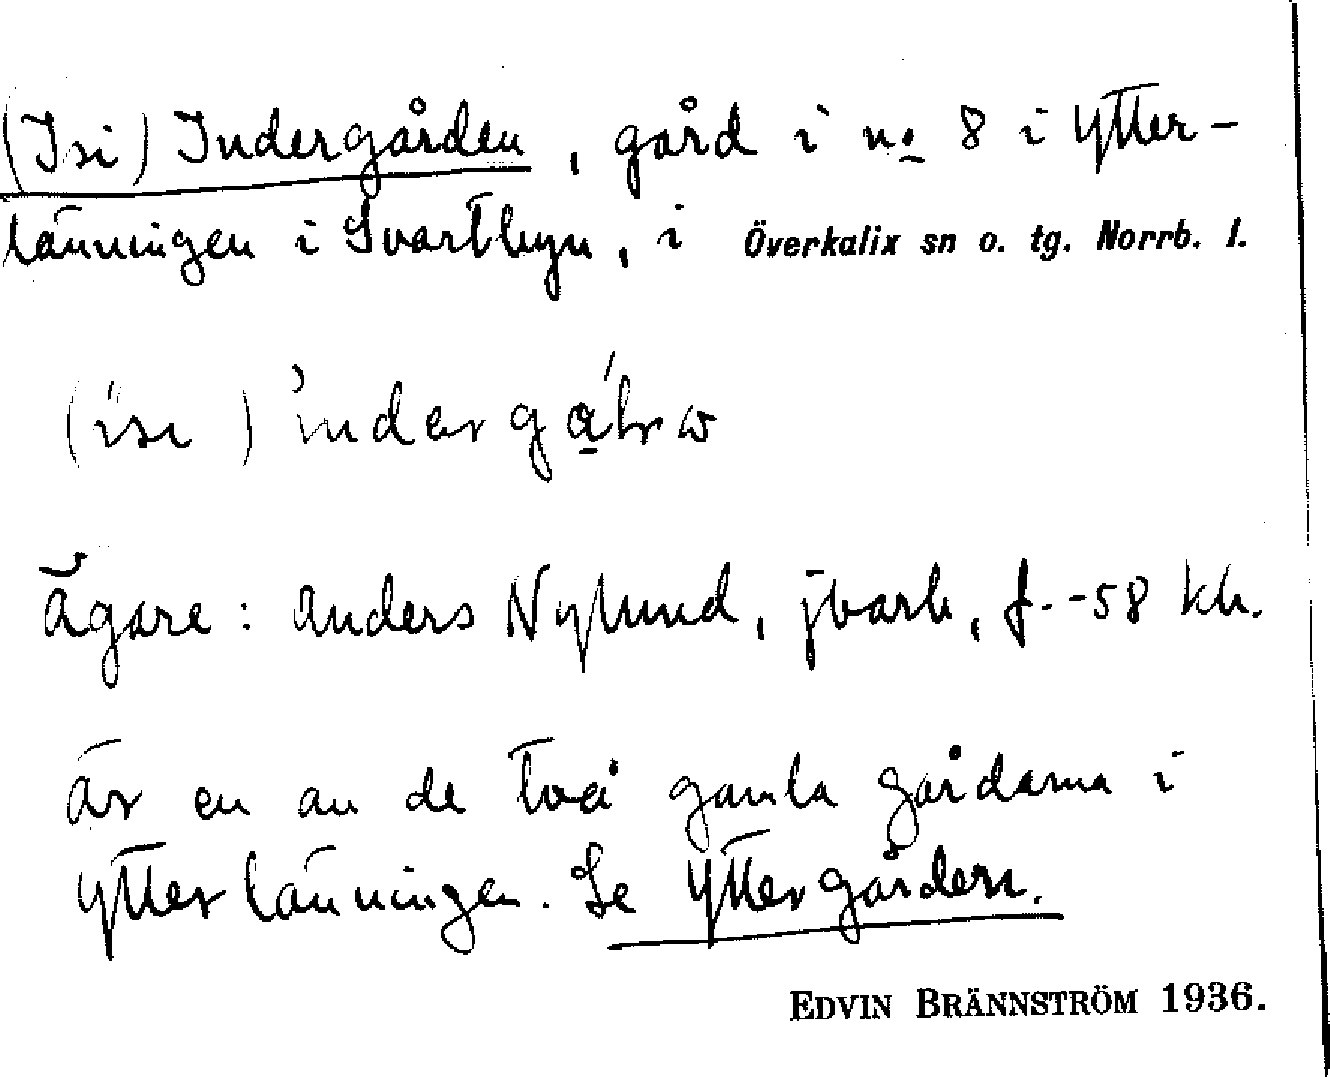 (Isi) Indergården, gård i no 8 i Ytter-
länningen i Svartbyn, i Överkalix sn o. tg. Norrb. l.
(isi) indergą́lrω
Ägare: Anders Nylund, jbarb, f. -58 kh.
är en au de två gamla gårdarna i
Ytterlänningen. Se Yttergården.
EDVIN BRÄNNSTRÖM 1936.